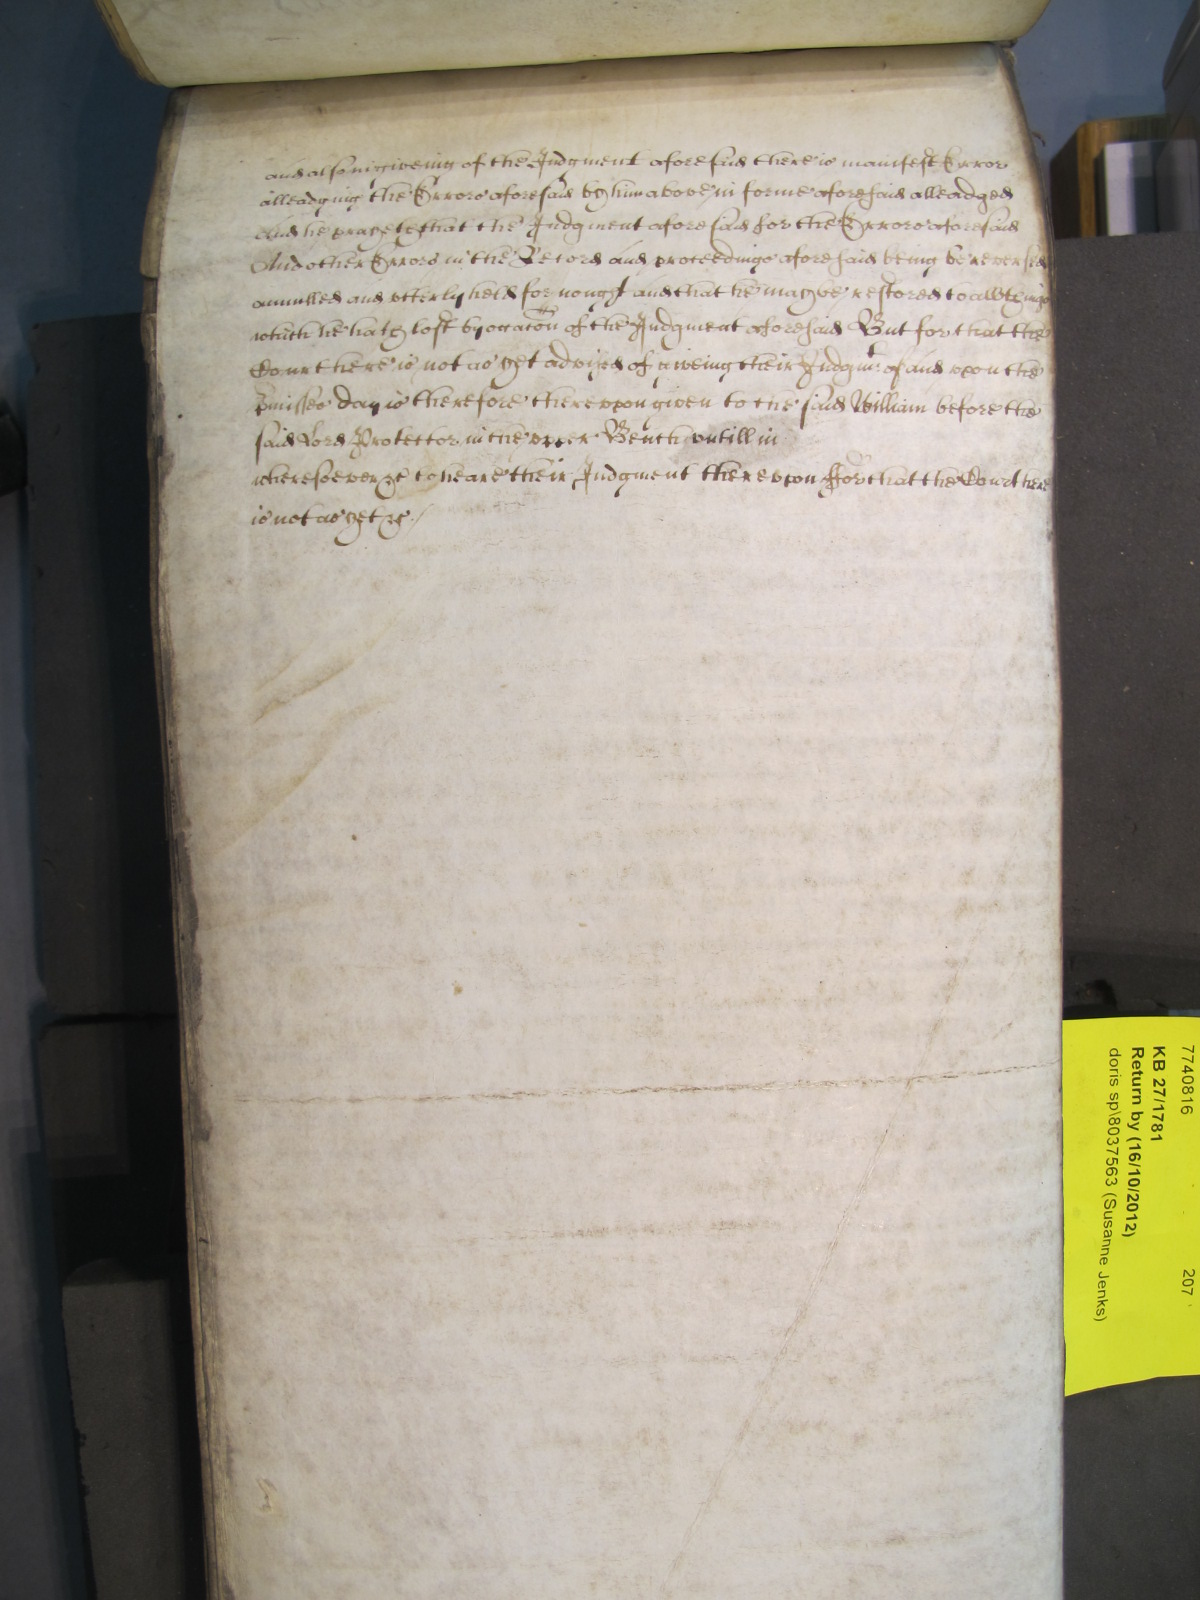 and also in giveing of the Judgment aforesaid there is manifest Error
alleadging the Errors aforesaid by him above in forme aforesaid alleadged
And he prayeth that the Judgment aforesaid for the Errors aforesaid
And other Errors in the Record and proceedings aforesaid being be reversed
annulled and utterly held for nought and that he may be restored to all things
which he hath lost by occacon of the Judgment aforesaid But for that the
Court here is not as yet advised of giveing their Judgmt of and upon the
pmisses day is therefore thereupon given to the said William before the
said Lord Protector in the upper Bench untill in
wheresoever &c to heare their Judgment thereupon ffor that the Court here
is not as yet &c
7740816 207
KB 27/1781
Return by (16/10/2012)
doris sp\8037563 (Susanne Jenks)